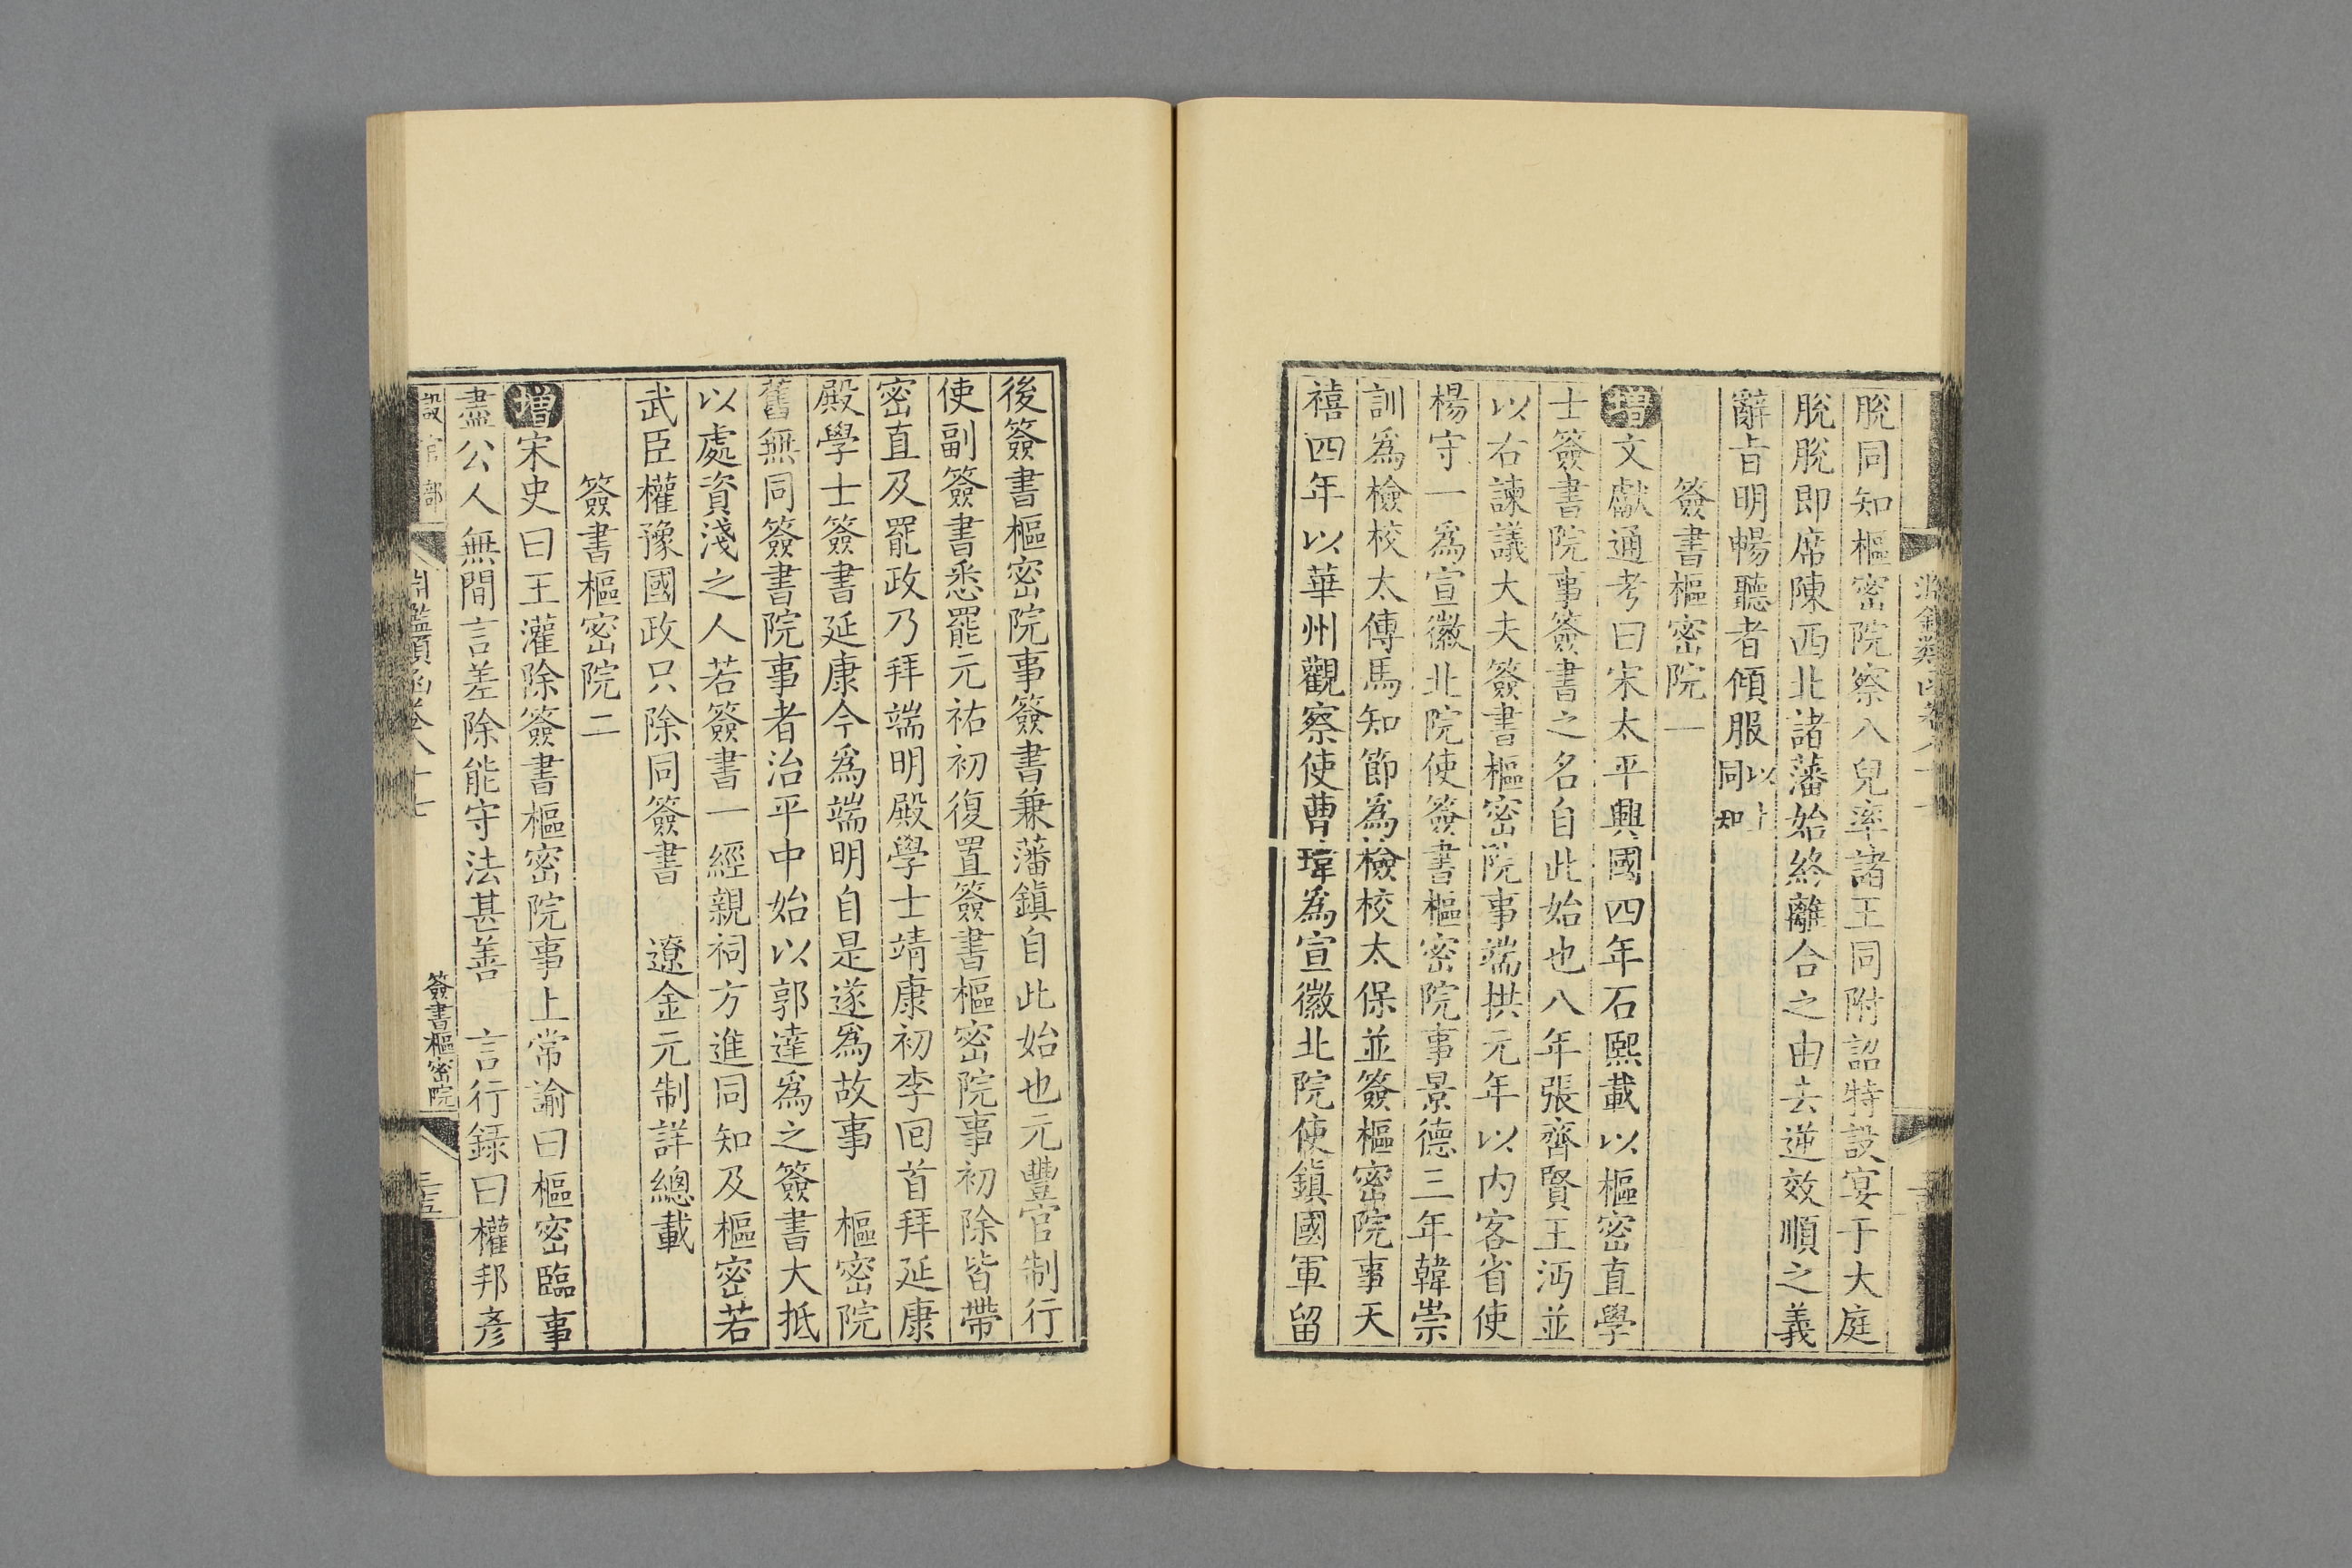 脫同知樞密院察八兒率諸王同附詔特設宴于大庭
脫脫即席陳西北諸藩始終離合之由去逆效順之義
辭旨明暢聽者傾服以上同知
簽書樞密院一
增文獻通考曰宋太平興國四年石熙載以樞密直學
士簽書院事簽書之名自此始也八年張齊賢王沔並
以右諫議大夫簽書樞密院事端拱元年以內客省使
楊守一為宣徽北院使簽書樞密院事景德三年韓崇
訓為檢校太傅馬知節為檢校太保並簽樞密院事天
禧四年以華州觀察使曹瑋為宣徽北院使鎮國軍留
後簽書樞密院事簽書兼藩鎮自此始也元豐官制行
使副簽書悉罷元祐初復置簽書樞密院事初除皆帶
密直及罷政乃拜端明殿學士靖康初李回首拜延康
殿學士簽書延康今為端明自是遂為故事　樞密院
舊無同簽書院事者治平中始以郭逵為之簽書大抵
以處資淺之人若簽書一經親祠方進同知及樞密若
武臣權豫國政只除同簽書　遼金元制詳總載
簽書樞密院二
增宋史曰王灌除簽書樞密院事上常諭曰樞密臨事
盡公人無間言差除能守法甚善　言行錄曰權邦彥
設官部
淵鑑類函卷八十七
簽書樞密院